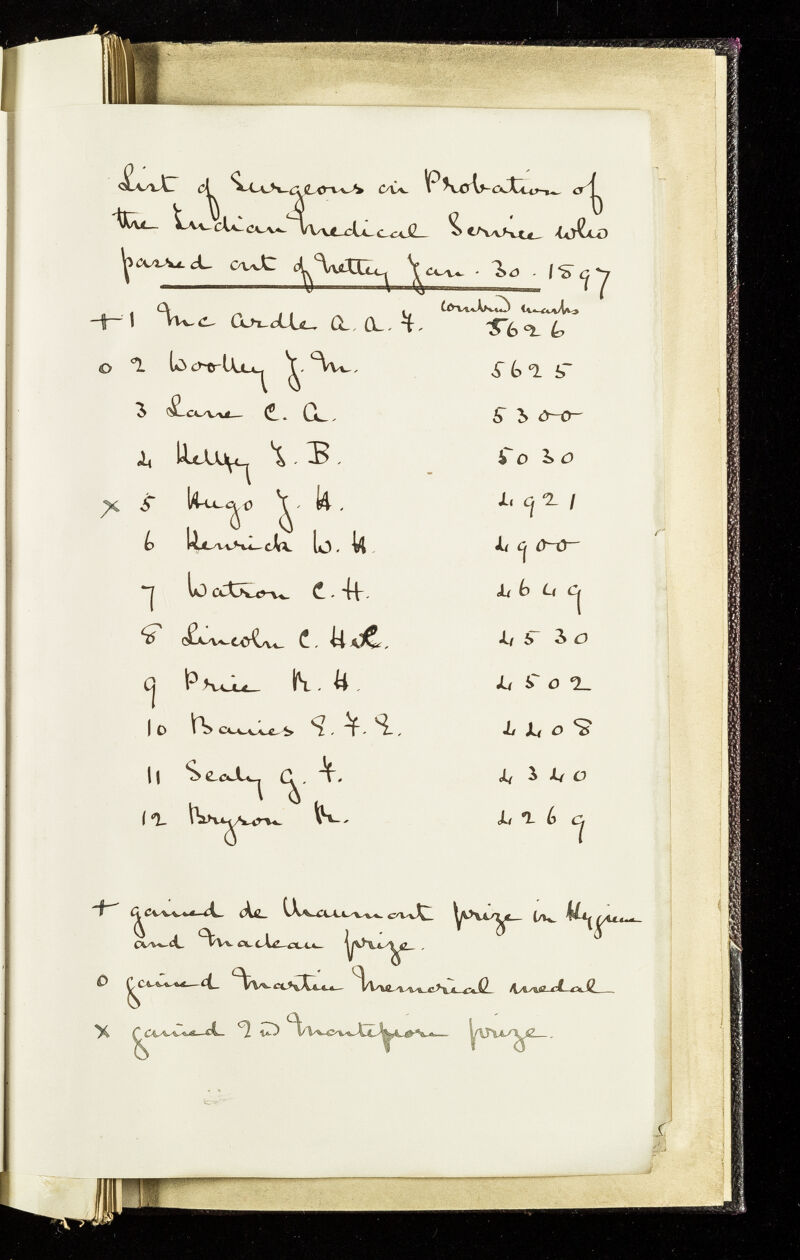 List of Surgeons on Probation of
the Indian Medical Service who
passed out of Netley Jan. 30. 1897
combined marks
+ 1 McArdle A. A. F. 5626
o 2 Woolley J. M. 5625
3 Lane C. A. 5300
4 Kelly J. B. 5030
x 5 Hugo J. H. 4921
6 Kenrick W. H. 4900
7 Watson C. H. 4649
8 Lincoln C. H. 4530
9 Price R. H. 4502
10 Baines E. F. E. 4408
11 Sealy G. F. 4340
12 Bryson R. 4269
+ gained de Chaumont prize in Hygiene
and Maclean prize.
o gained Martin Memorial medal
x gained 2nd Montefiore prize.